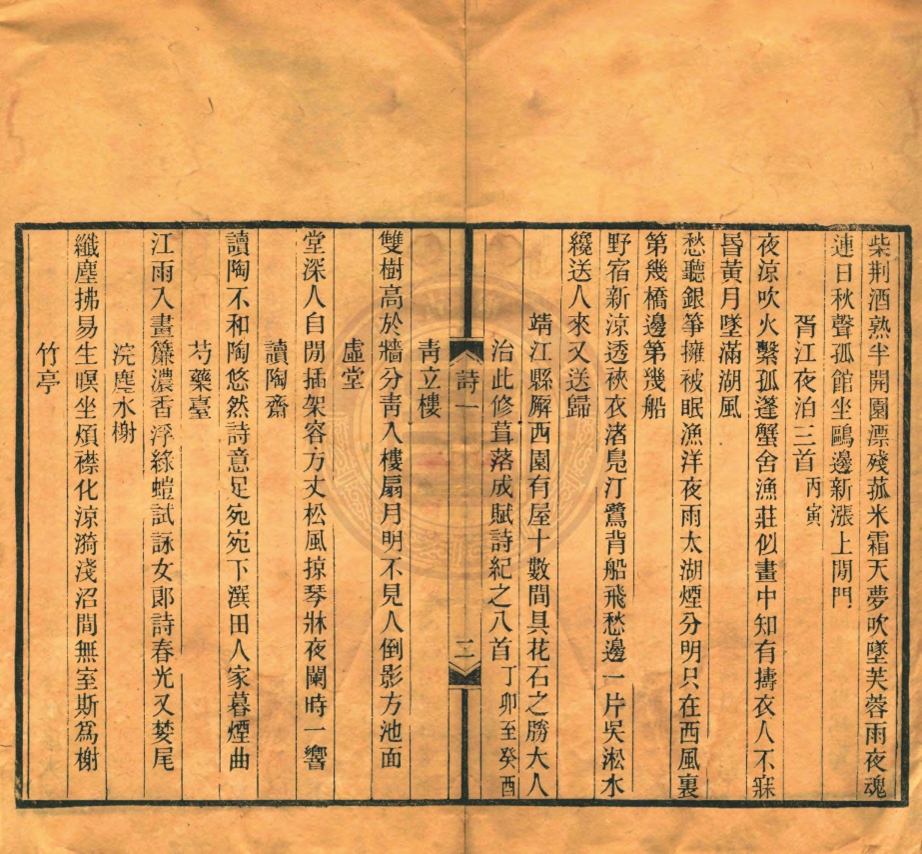 柴荆酒熟半開園漂殘菰米霜天夢吹墜芙蓉雨夜魂
連日秋聲孤館坐鷗邊新漲上閒門
胥江夜泊三首丙寅
夜涼吹火繫孤篷蟹舍漁莊似畫中知有擣衣人不寐
昬黃月墜滿湖風
愁聽銀箏擁被眠漁洋夜雨太湖煙分明只在西風裏
第幾橋邊第幾船
野宿新涼透裌衣渚鳧汀鷺背船飛愁邊一片吳淞水
纔送人來又送歸
靖江縣廨西園有屋十數間具花石之勝大人
治此修葺落成賦詩紀之八首丁卯至癸酉
詩一
二
靑立樓
雙樹高於牆分靑入樓扇月明不見人倒影方池面
虛堂
堂深人自閒插架容方丈松風掠琴牀夜闌時一響
讀陶齋
讀陶不和陶悠然詩意足宛宛下潠田人家暮煙曲
芍藥臺
江雨入畫簾濃香浮綠螘試詠女郎詩春光又婪尾
浣塵水榭
纖塵拂易生暝坐煩襟化涼漪淺沼間無室斯爲榭
竹亭